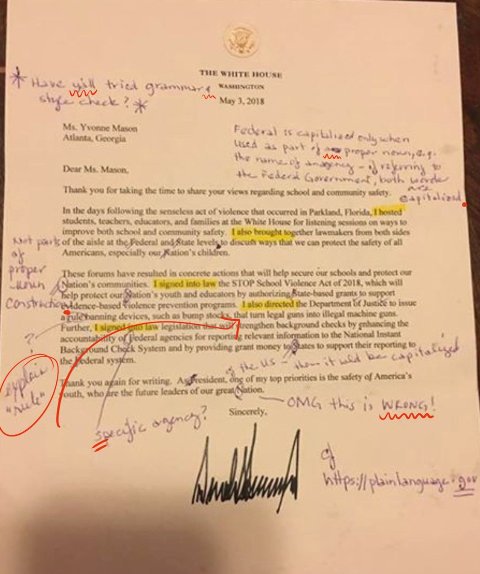 THE WHITE HOUSE
WASHINGTON
* Have y'all tried grammar &
style check? *
May 3, 2018
Ms. Yvonne Mason
Atlanta, Georgia
Federal is capitalized only when
used as part of proper noun, e.g.
the name of an agency - if referring to
the Federal Government, both words
are
capitalized.
Dear Ms. Mason,
Thank you for taking the time to share your views regarding school and community safety.
In the days following the senseless act of violence that occurred in Parkland, Florida, I hosted
students, teachers, educators, and families at the White House for listening sessions on ways to
improve both school and community safety. I also brought together lawmakers from both sides
of the aisle at the Federal and State levels to discuss ways that we can protect the safety of all
Americans, especially our Nation's children.
Not part
of
proper
noun
construction
These forums have resulted in concrete actions that will help secure our schools and protect our
Nation's communities. I signed into law the STOP School Violence Act of 2018, which will
help protect our Nation's youth and educators by authorizing State-based grants to support
evidence-based violence prevention programs. I also directed the Department of Justice to issue
a rule banning devices, such as bump stocks, that turn legal guns into illegal machine guns.
Further, I signed into law legislation that will strengthen background checks by enhancing the
accountability of Federal agencies for reporting relevant information to the National Instant
Background Check System and by providing grant money to States to support their reporting to
the Federal system.
?
explain
"rule"
of the US - then it'd be capitalized
Thank you again for writing. As President, one of my top priorities is the safety of America's
youth, who are the future leaders of our great Nation.
OMG this is WRONG!
Sincerely,
specific agency?
cf
https://plainlanguage.gov